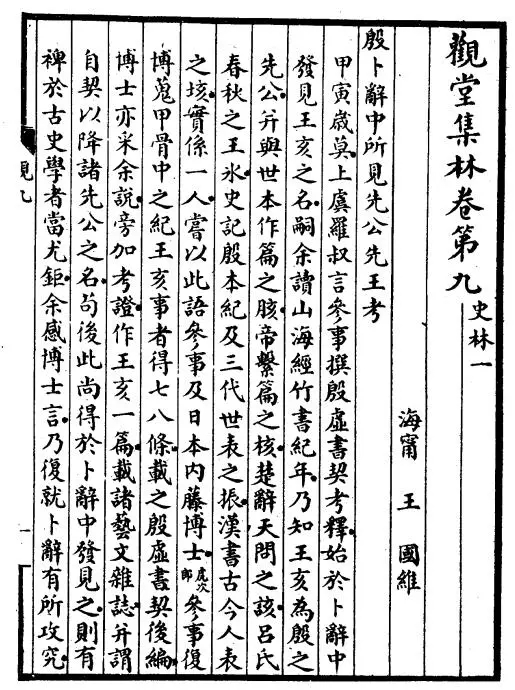 觀堂集林卷第九 史林一
海甯 王 國維
殷卜辭中所見先公先王考
甲寅歲莫上虞羅叔言參事撰殷虛書契考釋始於卜辭中
發見王亥之名嗣余讀山海經竹書紀年乃知王亥為殷之
先公并與世本作篇之胲帝繫篇之核楚辭天問之該呂氏
春秋之王氷史記殷本紀及三代世表之振漢書古今人表
之垓實係一人嘗以此語參事及日本內藤博士虎次郎參事復
博蒐甲骨中之紀王亥事者得七八條載之殷虛書契後編
博士亦采余說旁加考證作王亥一篇載諸藝文雜誌并謂
自契以降諸先公之名茍後此尚得於卜辭中發見之則有
裨於古史學者當尤鉅余感博士言乃復就卜辭有所攻究
觀九
一